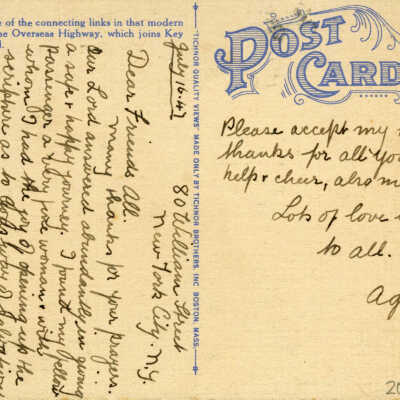 e of the connecting links in that modern
he Overseas Highway, which joins Key
TICHNOR QUALITY VIEWS MADE ONLY BY TICHNOR BROTHERS, INC. BOSTON, MASS.
POST
CARD
July 16-47
80 William Street
New York City. N.Y.
Dear Friends All.
Many thanks for your prayers.
Our Lord answered abundantly in giving
a safe & happy journey. I found my fellow
passenger a very fine woman & with
whom I had the joy of opening up the
scriptures as to God's way of Salvation
Please accept my
thanks for all you
help & cheer, also m
Lots of love
to all.
Ag
20